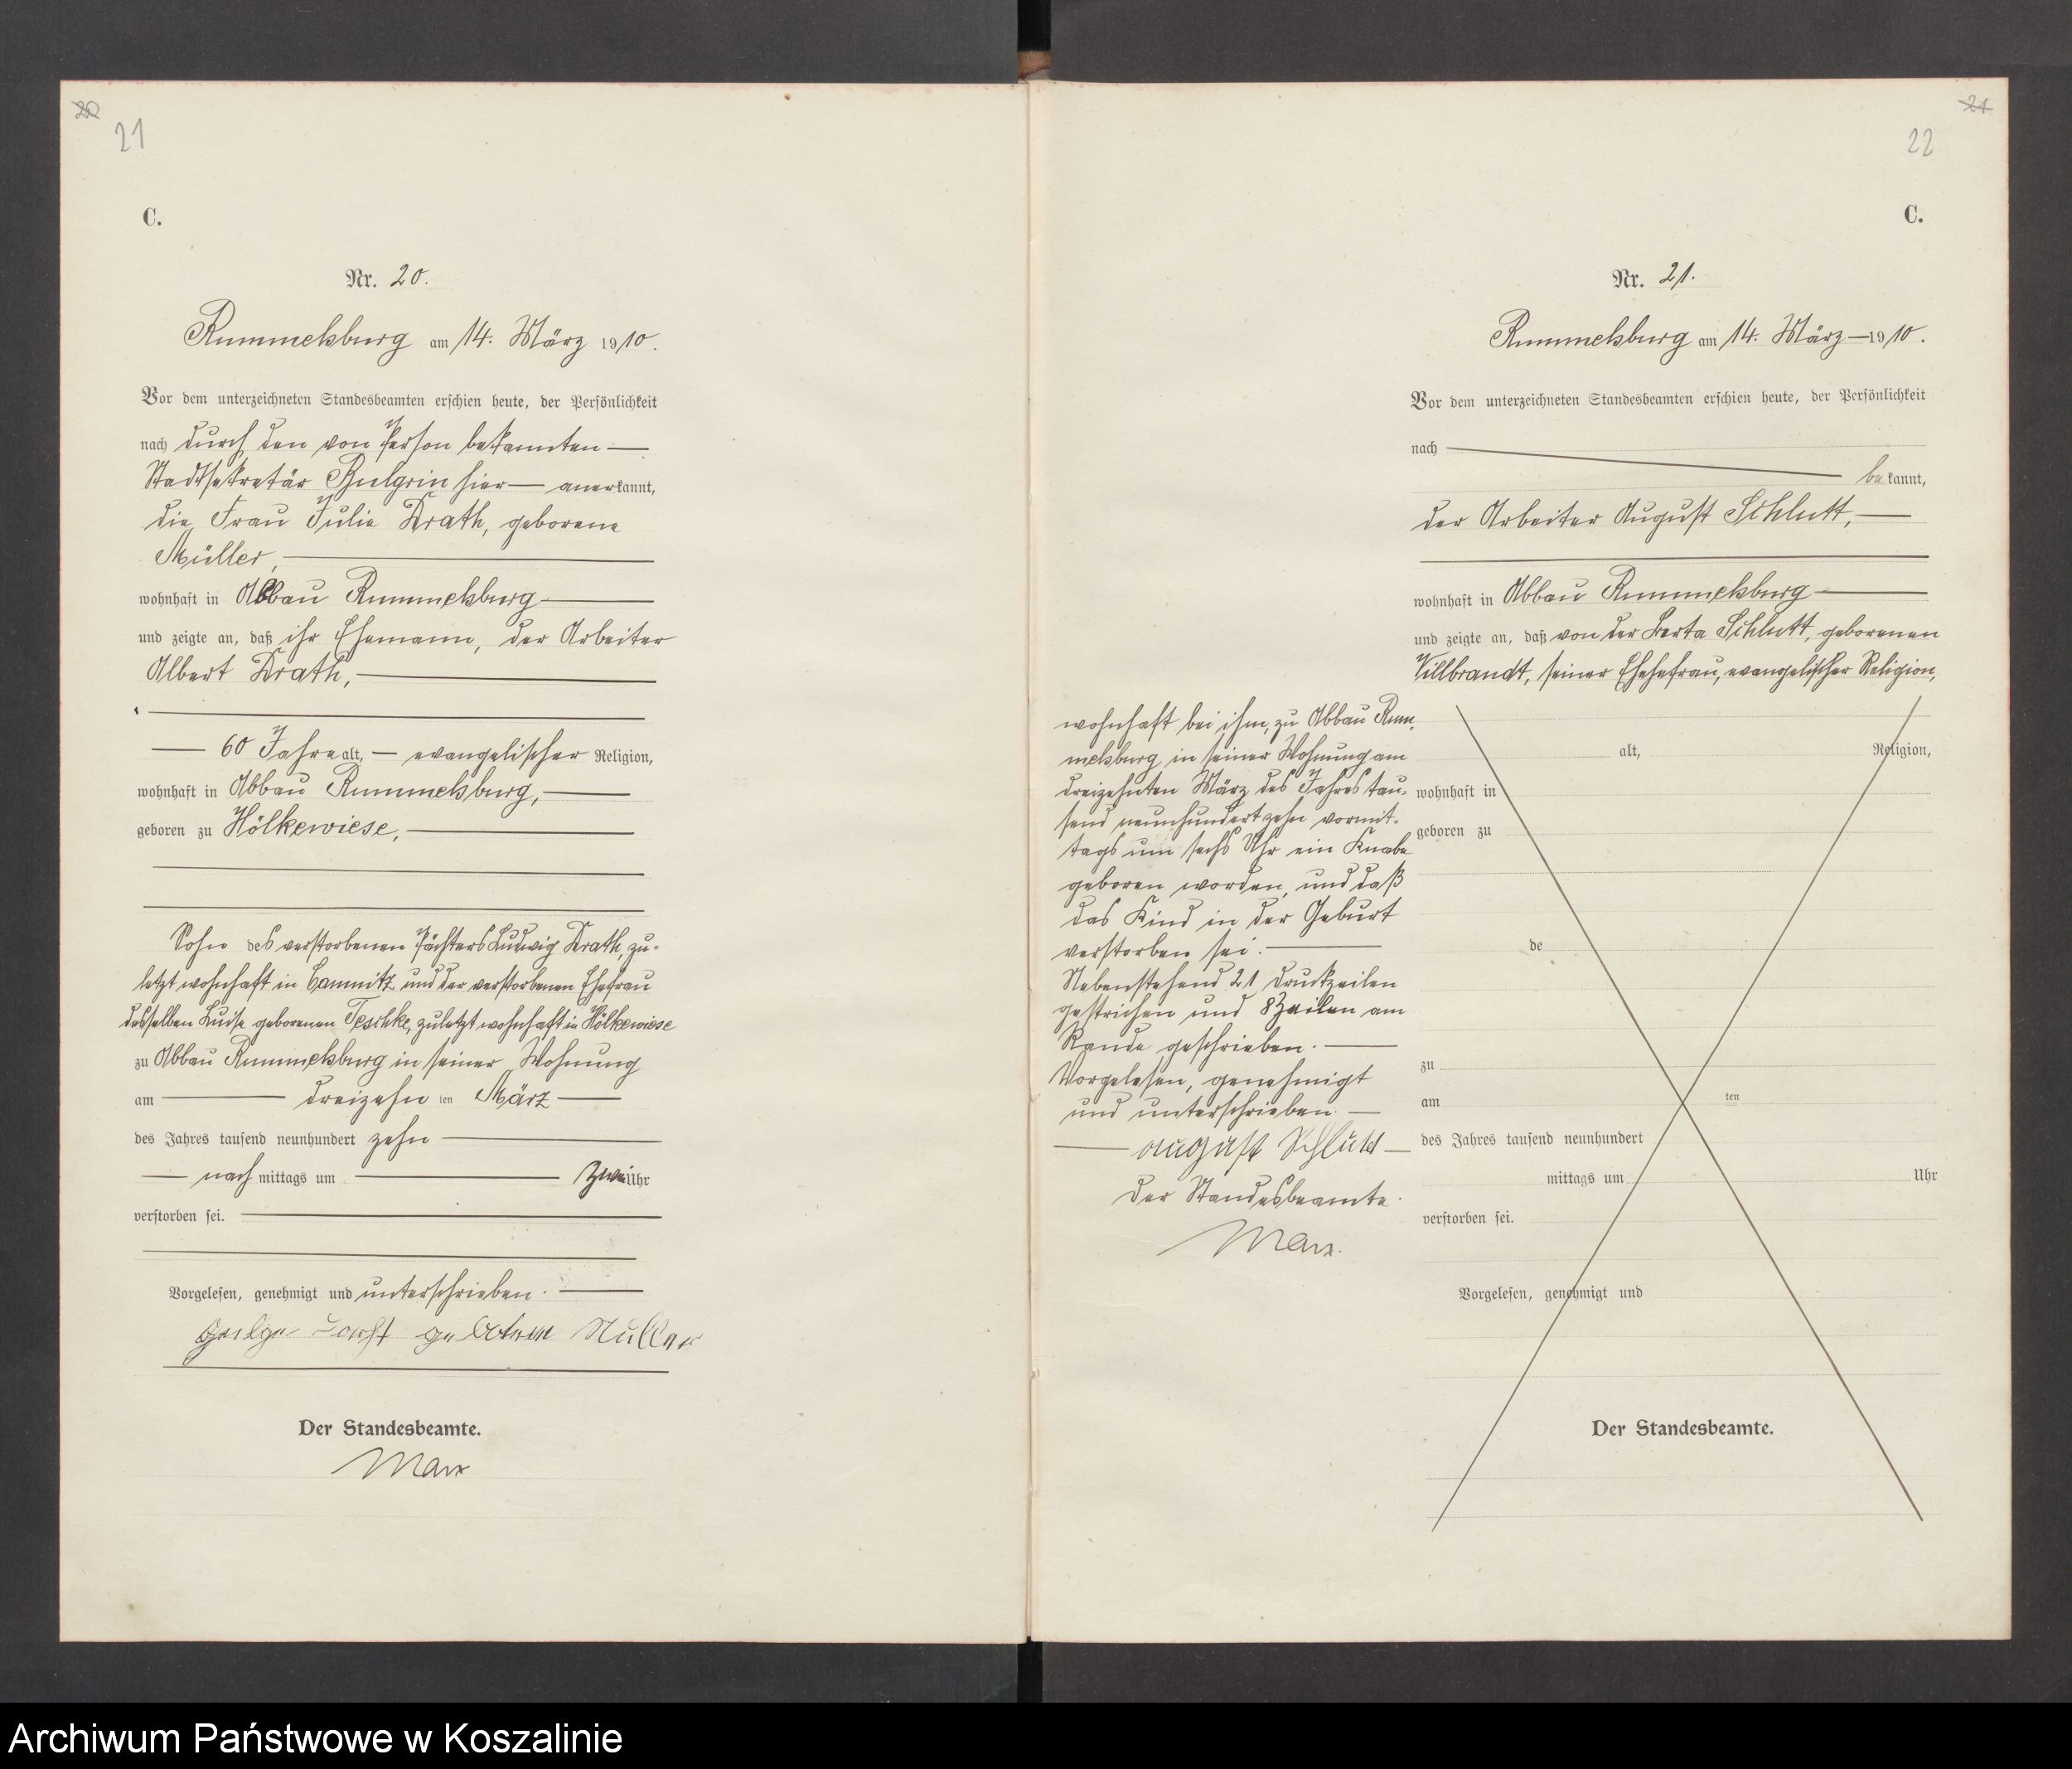 20
21
C.
Nr. 20.
Rummelsburg am 14. März 1910.
Vor dem unterzeichneten Standesbeamten erschien heute, der Persönlichkeit
nach durch den von Person bekannten
Stadtsekretär Bulgrin hier — anerkannt,
die Frau Julie Drath, geborene
Müller,
wohnhaft in Abbau Rummelsburg
und zeigte an, daß ihr Ehemann, der Arbeiter
Albert Drath,
60 Jahre alt, — evangelischer Religion,
wohnhaft in Abbau Rummelsburg,
geboren zu Hölkewiese,
Sohn des verstorbenen Pächters Ludwig Drath, zu-
letzt wohnhaft in Camnitz und der verstorbenen Ehefrau
desselben Luise geborenen Teschke, zuletzt wohnhaft in Hölkewiese
zu Abbau Rummelsburg in seiner Wohnung
am — dreizehn ten März
des Jahres tausend neunhundert zehn
nach mittags um — zwei Uhr
verstorben sei.
Vorgelesen, genehmigt und unterschrieben.
Müller
Der Standesbeamte.
Marx
21
22
C.
Nr. 21.
Rummelsburg am 14. März — 1910.
Vor dem unterzeichneten Standesbeamten erschien heute, der Persönlichkeit
nach
bekannt,
der Arbeiter August Schlutt,
wohnhaft in Abbau Rummelsburg
und zeigte an, daß von der Berta Schlutt, geborenen
Villbrandt, seiner Ehehefrau, evangelischer Religion,
wohnhaft bei ihm, zu Abbau Rum-
melsburg in seiner Wohnung am
dreizehnten März des Jahres tau-
send neunhundertzehn vormit-
tags um sechs Uhr ein Knabe
geboren worden, und daß
das Kind in der Geburt
verstorben sei.
Nebenstehend 21 Druckzeilen
gestrichen und 8 Zeilen am
Rande geschrieben.
Vorgelesen, genehmigt
und unterschrieben.
august Schlutt
Der Standesbeamte.
Marx.
alt, Religion,
wohnhaft in
geboren zu
de
zu
am ten
des Jahres tausend neunhundert
mittags um Uhr
verstorben sei.
Vorgelesen, genehmigt und
Der Standesbeamte.
Archiwum Państwowe w Koszalinie